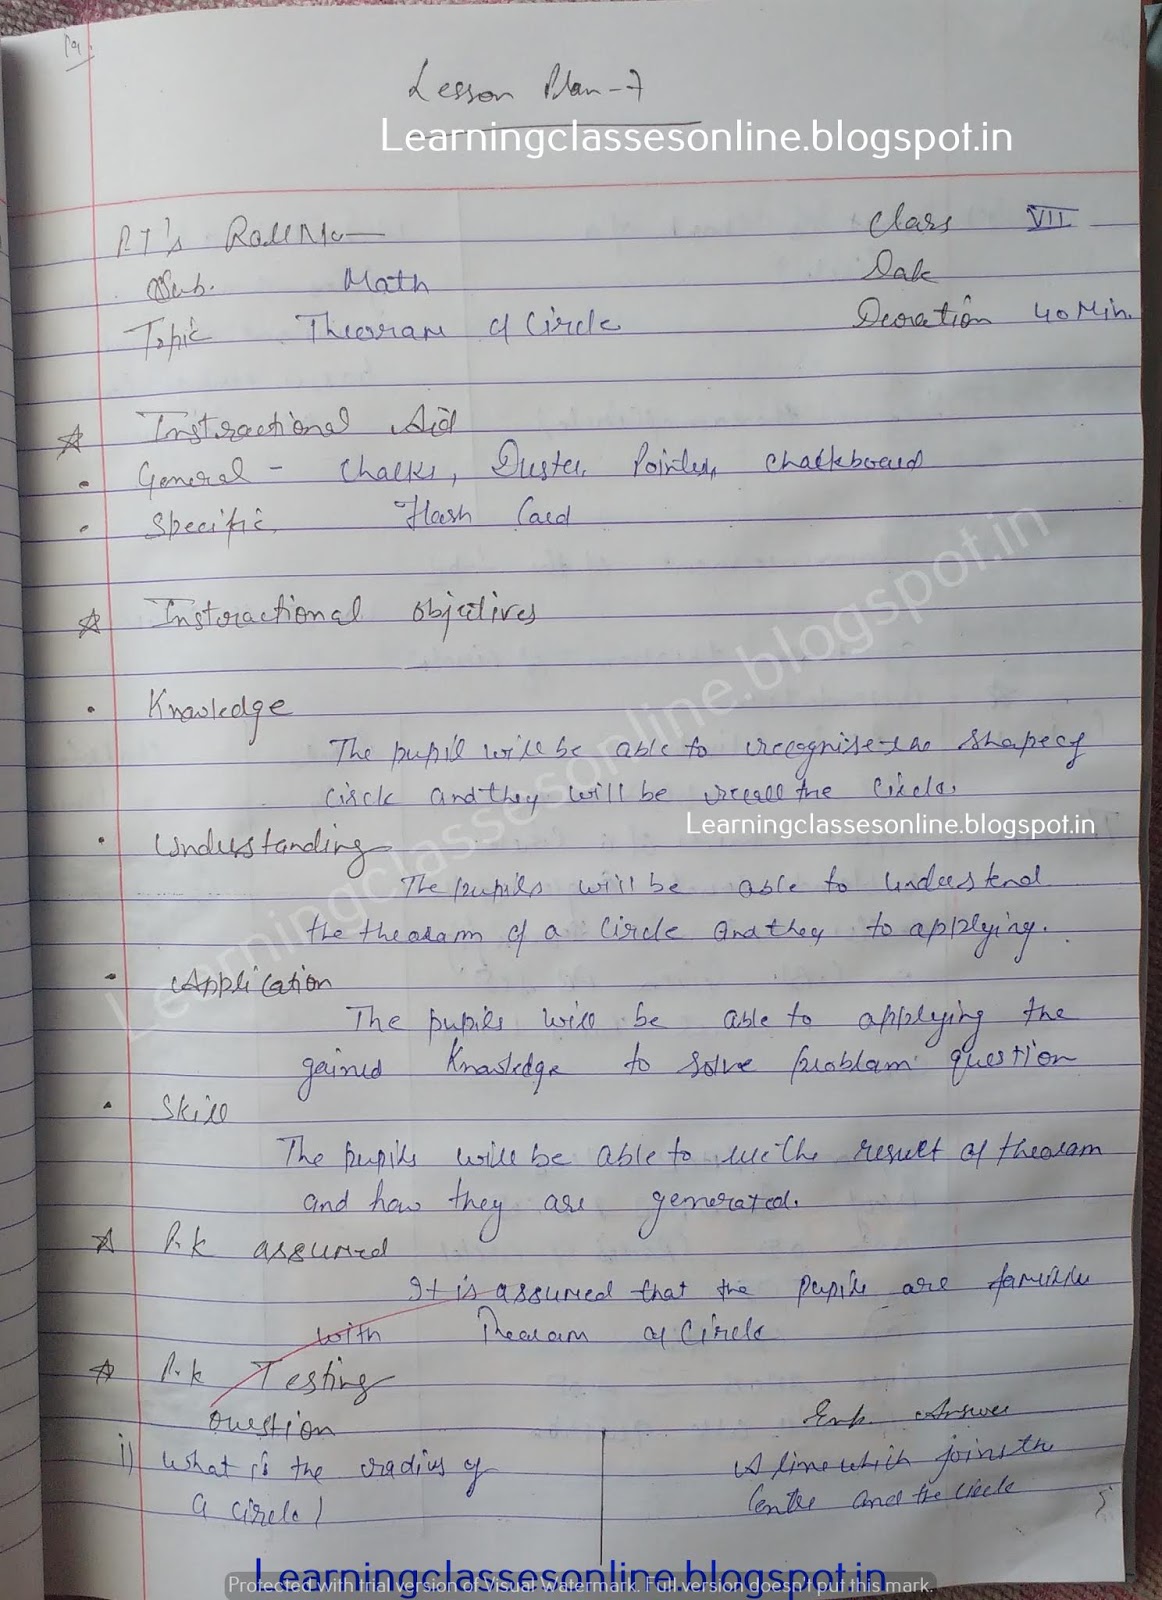 Pg:
Lesson Plan-7
Learningclassesonline.blogspot.in
P.T's Roll No — Class VII
Sub. Math Date
Topic Theoram of Circle Deoration 40 Min.
☆ Instoractional Aid
• General - Chalks, Duster, Pointer, Chalkboard
• Specific Flash Card
☆ Instoractional objectives
• Knowledge
The pupil will be able to recognise the shape of
circle and they will be recall the Circle.
Learningclassesonline.blogspot.in
• Understanding
The pupils will be able to understand
the theoram of a Circle and they to applying.
• Application
The pupils will be able to applying the
gained knowledge to solve problam question
• Skill
The pupils will be able to the result of theoram
and how they are generated.
☆ P.k assumed
It is assumed that the pupils are familier
with Theoram of Circle
☆ P.k Testing
Question Exp. Answer
i) What is the radius of A line which joins the
a circle / Centre and the circle
Learningclassesonline.blogspot.in
Learningclassesonline.blogspot.in
Protected with trial version of Visual Watermark. Full version doesn't put this mark.